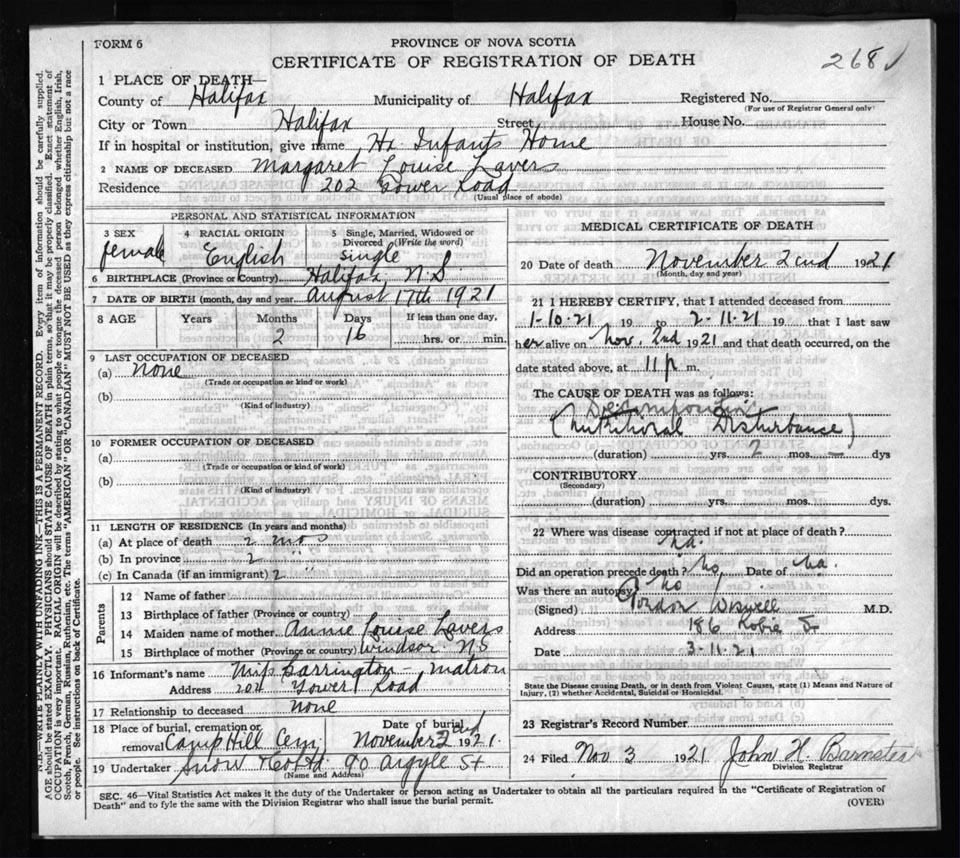 FORM 6
PROVINCE OF NOVA SCOTIA
CERTIFICATE OF REGISTRATION OF DEATH
268
1 PLACE OF DEATH—
County of Halifax Municipality of Halifax Registered No.
(For use of Registrar General only)
City or Town Halifax Street House No.
If in hospital or institution, give name Hx. Infants Home
2 NAME OF DECEASED Margaret Louise Lavers
Residence 202 Tower Road
(Usual place of abode)
PERSONAL AND STATISTICAL INFORMATION
3 SEX female
4 RACIAL ORIGIN English
5 Single, Married, Widowed or Divorced (Write the word) Single
6 BIRTHPLACE (Province or Country) Halifax N.S.
7 DATE OF BIRTH (month, day and year August 17th 1921
8 AGE Years Months Days If less than one day,
2 16 hrs. or min.
9 LAST OCCUPATION OF DECEASED
(a) None
(Trade or occupation or kind or work)
(b)
(Kind of industry)
10 FORMER OCCUPATION OF DECEASED
(a)
(Trade or occupation or kind of work)
(b)
(Kind of industry)
11 LENGTH OF RESIDENCE (In years and months)
(a) At place of death 2 mos
(b) In province 2 "
(c) In Canada (if an immigrant) 2 "
Parents
12 Name of father
13 Birthplace of father (Province or country)
14 Maiden name of mother Annie Louise Lavers
15 Birthplace of mother (Province or country) Windsor NS
16 Informant's name Miss Barrington - matron
Address 204 Tower Road
17 Relationship to deceased None
18 Place of burial, cremation or removal Camp Hill Cem Date of burial November 1921
19 Undertaker Snow & Co Ltd 90 Argyle St
(Name and Address)
MEDICAL CERTIFICATE OF DEATH
20 Date of death November 2nd 1921
(Month, day and year)
21 I HEREBY CERTIFY, that I attended deceased from
1-10-21 19 to 2-11-21 19 that I last saw
her alive on Nov. 2nd 1921 and that death occurred, on the
date stated above, at 11 p m.
The CAUSE OF DEATH was as follows:
Decomposition
(Nutritional Disturbance)
(duration) yrs. 2 mos. — dys
CONTRIBUTORY
(Secondary)
(duration) yrs. mos. dys.
22 Where was disease contracted if not at place of death?
na.
Did an operation precede death? no Date of na.
Was there an autopsy no
(Signed) Gordon Wiswell M.D.
Address 186 Robie St
Date 3-11-21
State the Disease causing Death, or in death from Violent Causes, state (1) Means and Nature of
Injury, (2) whether Accidental, Suicidal or Homicidal.
23 Registrar's Record Number
24 Filed Nov 3 1921 John H. Barnstead
Division Registrar
SEC. 46—Vital Statistics Act makes it the duty of the Undertaker or person acting as Undertaker to obtain all the particulars required in the "Certificate of Registration of
Death" and to fyle the same with the Division Registrar who shall issue the burial permit.
(OVER)
N.B.—WRITE PLAINLY WITH UNFADING INK—THIS IS A PERMANENT RECORD. Every item of information should be carefully supplied.
AGE should be stated EXACTLY. PHYSICIANS should STATE CAUSE OF DEATH in plain terms, so that it may be properly classified. Exact statement of
OCCUPATION is very important. RACIAL ORIGIN will be described by stating to what people or tongue the deceased person belonged, whether English, Irish,
Scotch, French, German, Russian, Ruthenian, etc. The terms "AMERICAN" OR "CANADIAN" MUST NOT BE USED as they express citizenship but not a race
or people. See instructions on back of Certificate.